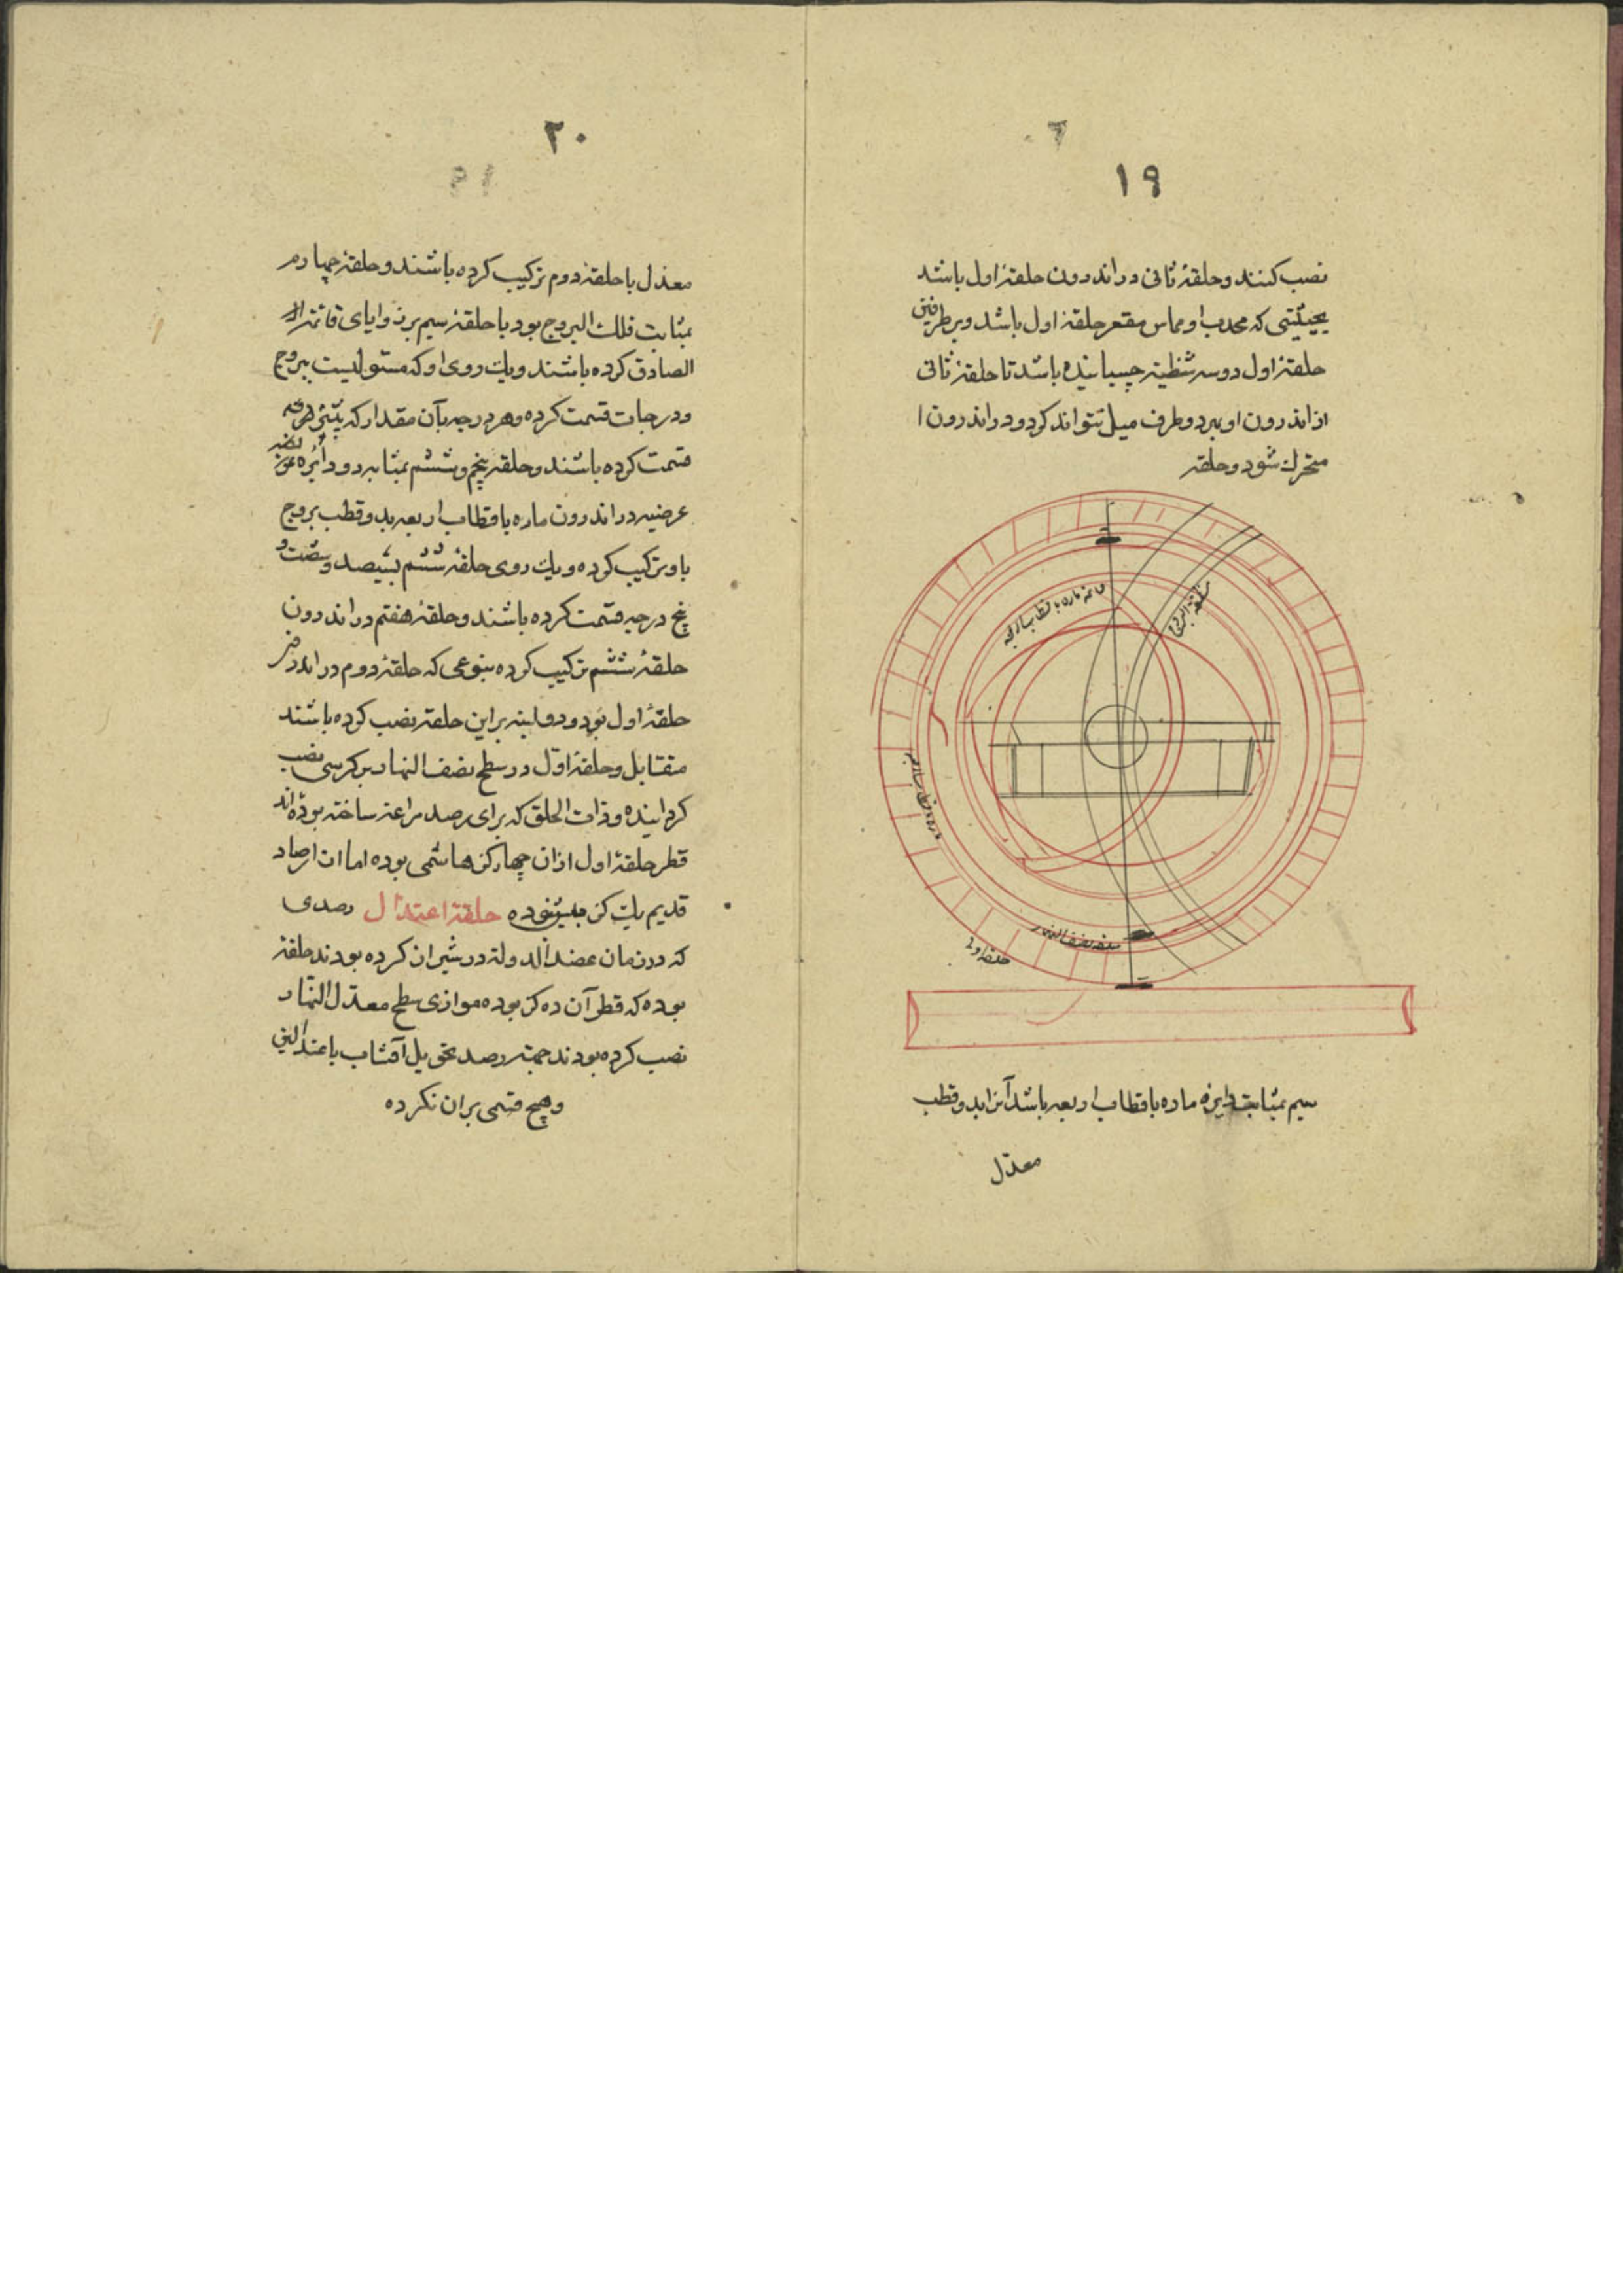 ١٩
نصب کنند و حلقهٔ ثانی در اندرون حلقهٔ اول باشد
بحیثیتی که محدب او مماس مقعر حلقهٔ اول باشد و بر طرفین
حلقهٔ اول دو سه شظیه چسپانیده باشد تا حلقهٔ ثانی
از اندرون او ببرد و طرف میل نتواند کرد و در اندرون ا
متحرك شود و حلقه
ماره باقطاب اربعه
منطقة البروج
نصف النهار
حلقه اول
سیم بمثابت دایره ماره باقطاب اربعه باشد آنرا بد و قطب
معدل
٢٠
معدل با حلقهٔ دوم ترکیب کرده باشند و حلقهٔ چهارم
بمثابت فلك البروج بود با حلقهٔ سیم بر زوایای قائمه
الصادق کرده باشند و یك روی او که مستولیست ببروج
و درجات قسمت کرده و هر درجه بآن مقدار که
قسمت کرده باشند و حلقه پنجم و ششم بمثابه دو دائره
عرضیه در اندرون ماره باقطاب اربعه بد و قطب بروج
با و ترکیب کرده و یك روی حلقهٔ ششم بسیصد و شصت و
پنج درجه قسمت کرده باشند و حلقهٔ هفتم در اندرون
حلقهٔ ششم ترکیب کرده بنوعی که حلقهٔ دوم در اندرون
حلقهٔ اول بود و دو لبنه بر این حلقه نصب کرده باشند
متقابل و حلقهٔ اول در سطح نصف النهار بر کرسی نصب
کردانیده و ذات الحلق که برای رصد مراغه ساخته بوده اند
قطر حلقهٔ اول ازان چهار کز هاشمی بوده اما ان ارصاد
قدیم یك کز بیش نبوده حلقهٔ اعتدال رصدی
که در زمان عضد الدوله در شیراز کرده بودند حلقهٔ
بوده که قطر آن ده کز بوده موازی سطح معدل النهار
نصب کرده بودند جهته رصد تحویل آفتاب باعتدالین
و هیچ قسمی بران نکرده